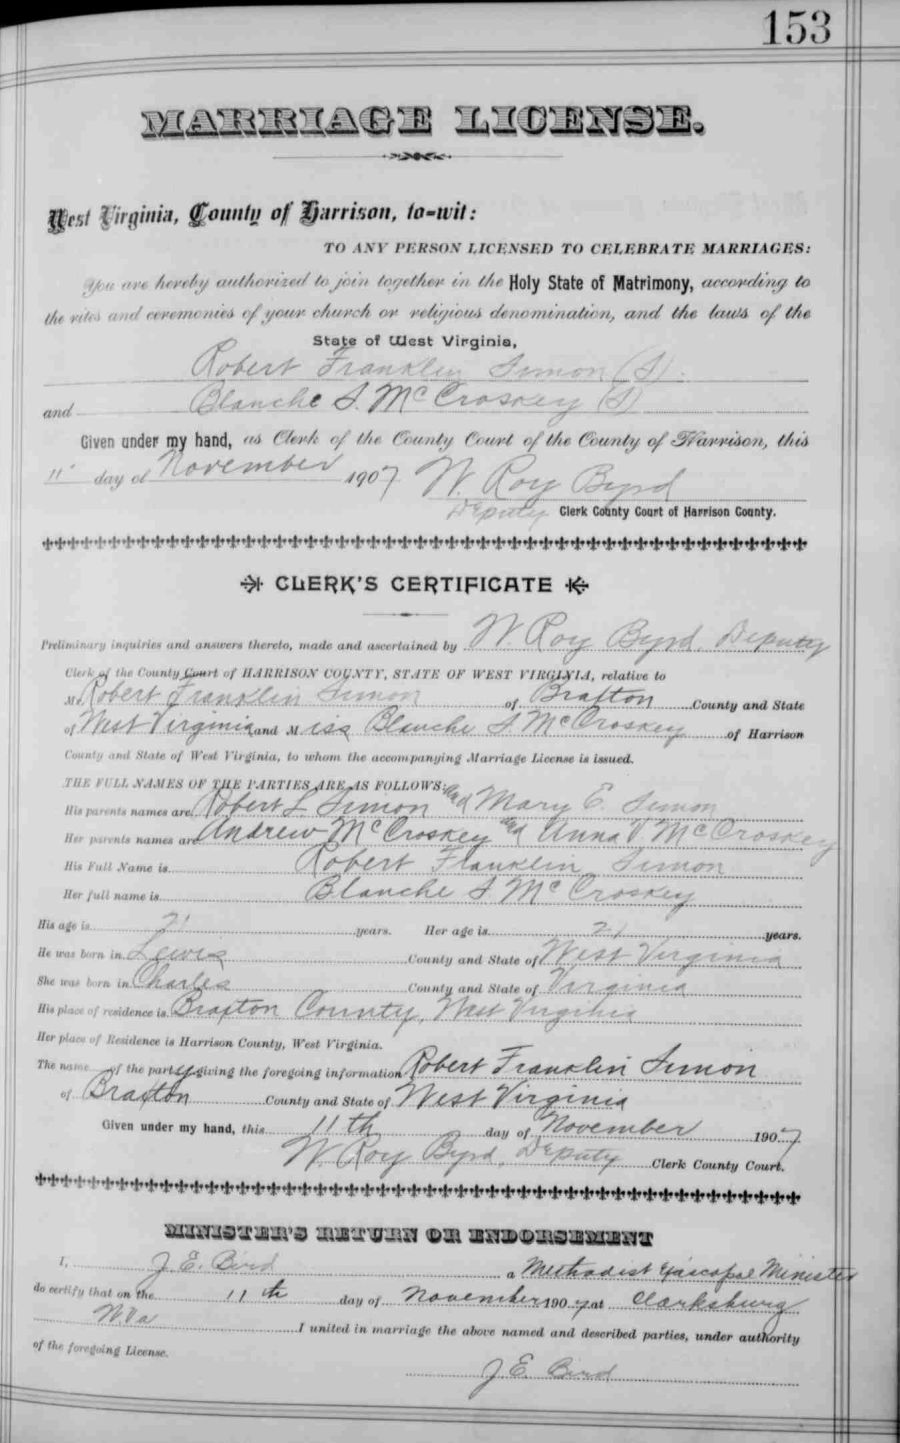 153
MARRIAGE LICENSE.
West Virginia, County of Harrison, to-wit:
TO ANY PERSON LICENSED TO CELEBRATE MARRIAGES:
You are hereby authorized to join together in the Holy State of Matrimony, according to
the rites and ceremonies of your church or religious denomination, and the laws of the
State of West Virginia,
Robert Franklin Simon (S)
and Blanche S. McCroskey (S)
Given under my hand, as Clerk of the County Court of the County of Harrison, this
11" day of November 1907 W. Roy Byrd
Deputy Clerk County Court of Harrison County.
CLERK'S CERTIFICATE
Preliminary inquiries and answers thereto, made and ascertained by W. Roy Byrd, Deputy
Clerk of the County Court of HARRISON COUNTY, STATE OF WEST VIRGINIA, relative to
Mr Robert Franklin Simon of Braxton County and State
of West Virginia and Miss Blanche S. McCroskey of Harrison
County and State of West Virginia, to whom the accompanying Marriage License is issued.
THE FULL NAMES OF THE PARTIES ARE AS FOLLOWS:
His parents names are Robert L. Simon and Mary E. Simon
Her parents names are Andrew McCroskey and Anna V. McCroskey
His Full Name is Robert Franklin Simon
Her full name is Blanche S. McCroskey
His age is 21 years. Her age is 21 years.
He was born in Lewis County and State of West Virginia
She was born in Charles County and State of Virginia
His place of residence is Braxton County, West Virginia
Her place of Residence is Harrison County, West Virginia.
The name of the party giving the foregoing information Robert Franklin Simon
of Braxton County and State of West Virginia
Given under my hand, this 11th day of November 1907
W. Roy Byrd, Deputy Clerk County Court.
MINISTER'S RETURN OR ENDORSEMENT
I, J. E. Bird a Methodist Episcopal Minister
do certify that on the 11th day of November 1907 at Clarksburg
W.Va I united in marriage the above named and described parties, under authority
of the foregoing License.
J. E. Bird